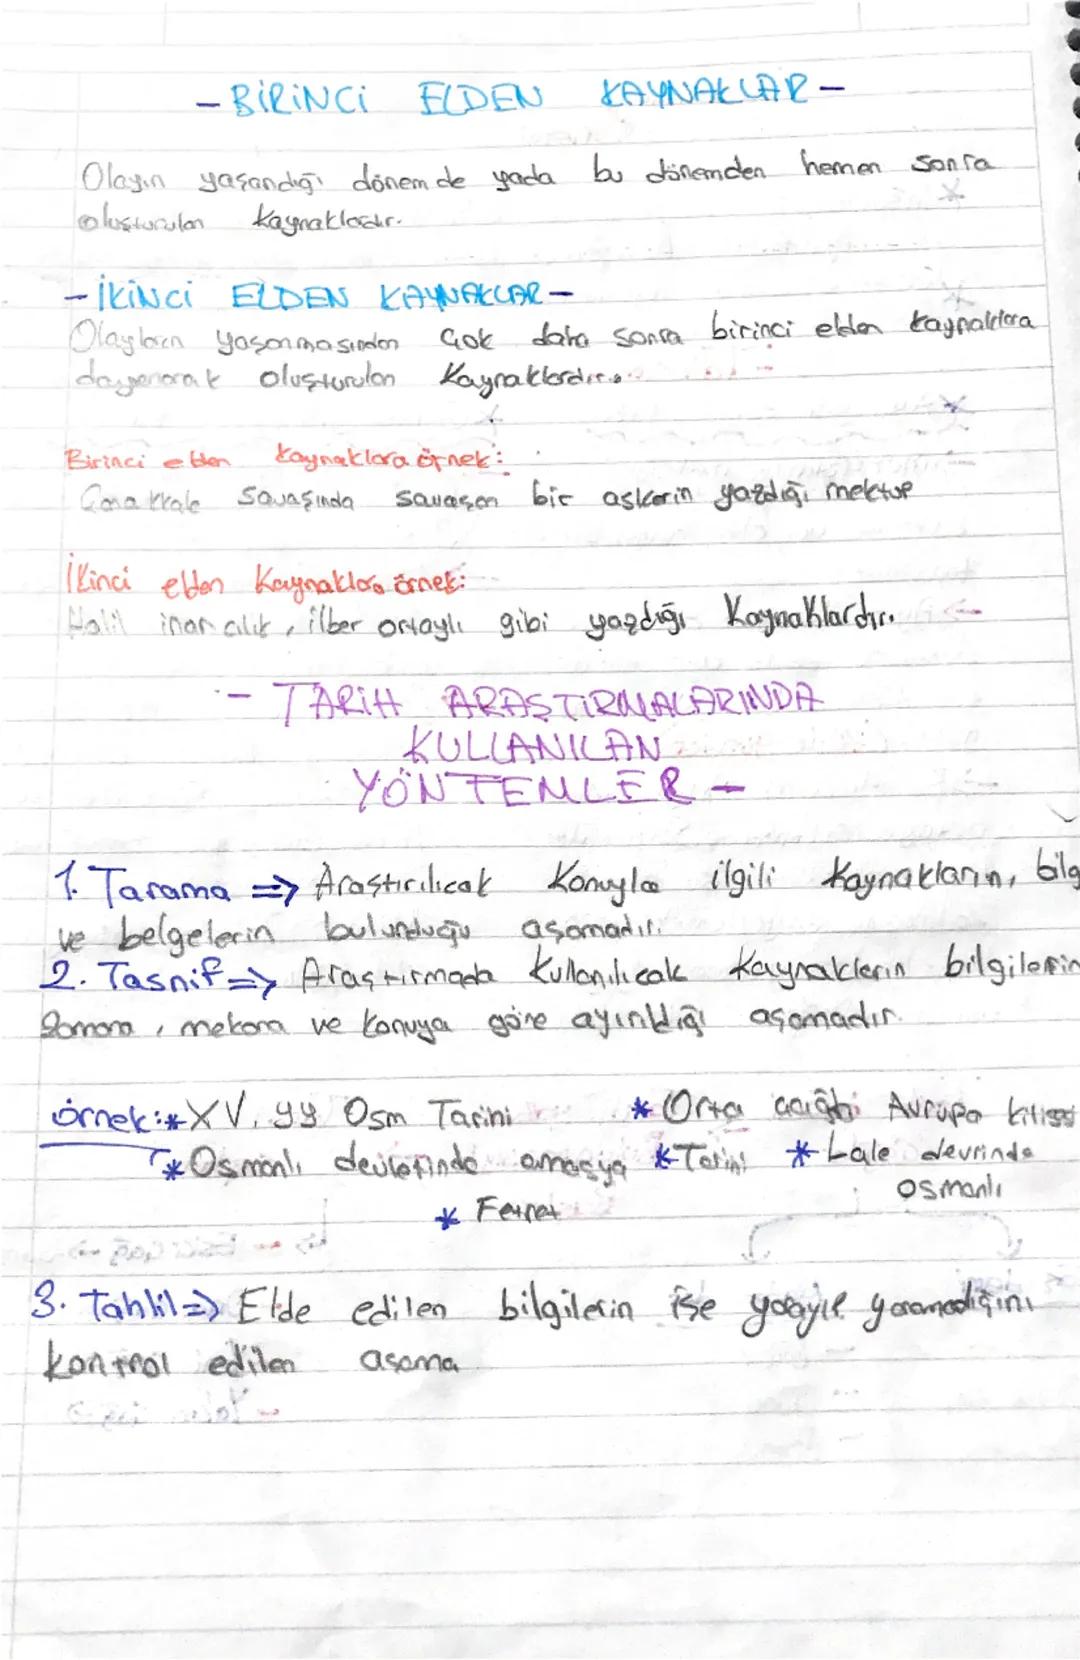 - BİRİNCİ ELDEN KAYNAKLAR -
Olayın yaşandığı dönemde yada bu dönemden hemen sonra
oluşturulan kaynaklardır.
- İKİNCİ ELDEN KAYNAKLAR -
Olayların yaşanmasından çok daha sonra birinci elden kaynaklara
dayanarak oluşturulan kaynaklardır.
Birinci elden kaynaklara örnek:
Çanakkale Savaşında savaşan bir askerin yazdığı mektup
İkinci elden kaynaklara örnek:
Halil inarcılık, ilber ortaylı gibi yazdığı Kaynaklardır.
- TARİH ARAŞTIRMALARINDA
KULLANILAN
YÖNTEMLER -
1. Tarama => Araştırılıcak Konuyla ilgili kaynakların, bilg
ve belgelerin bulunduğu aşamadır.
2. Tasnif => Araştırmada Kullanılıcak kaynakların bilgilerin
Zamana, mekana ve konuya göre ayırıldığı aşamadır.
örnek: * XV. yy Osm Tarihi * Orta Avrupa kilise
* Osmanlı devletinde amasya * Tarihi * Lale devrinde
osmanlı
* Fetret
3. Tahlil => Elde edilen bilgilerin işe yarayıp yaramadığını
kontrol edilen aşama